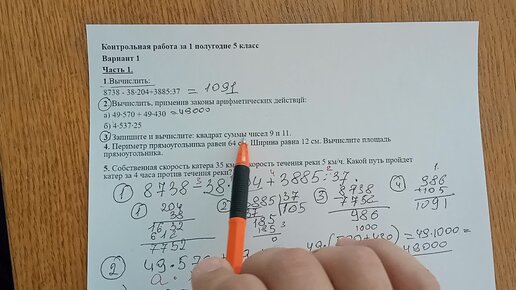 Контрольная работа за 1 полугодие 5 класс
Вариант 1
Часть 1.
1.Вычислить:
8738 - 38·204+3885:37 = 1091
2.Вычислить, применив законы арифметических действий:
а) 49·570 + 49·430 = 49000
б) 4·537·25
3. Запишите и вычислите: квадрат суммы чисел 9 и 11.
4. Периметр прямоугольника равен 64 Ширина равна 12 см. Вычислите площадь
прямоугольника.
5. Собственная скорость катера 35 км скорость течения реки 5 км/ч. Какой путь пройдет
катер за 4 часа против течения
1 8738 - 38 4 + 3885 : 37
204
38
1632
612
7752
885 37
37 105
185
185
0
3 8738
7752
986
4 986
+105
1091
1000
2 49·57
49· = 49·1000 =
49000